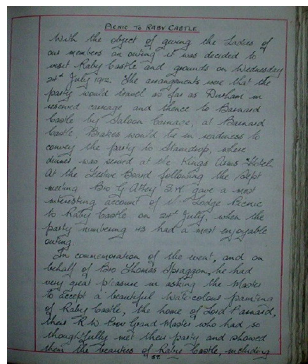 PICNIC TO RABY CASTLE.
With the object of giving the Ladies of
our members an outing it was decided to
visit Raby Castle and grounds on Wednesday
20th July 1912. The arrangements were that the
party would travel so far as Durham in
reserved carriage and thence to Barnard
Castle by Saloon Carriage, at Barnard
Castle Brakes would be in readiness to
convey the party to Staindrop, where
dinner was served at the Kings Arms Hotel.
At the Festive Board following the Sept
meeting Bro G. gave a most
interesting account of Lodge Picnic
to Raby Castle on 20th July, when the
party numbering had a most enjoyable
outing.
In commemoration of the event, and on
behalf of Bro Thomas Spraggon, he had
very great pleasure in asking the Master
to accept a beautiful Water-colour painting
of Raby Castle, the home of Lord Barnard,
their R.W. Prov Grand Master who had so
thoughtfully met their party and showed
them the beauties of Raby Castle, including